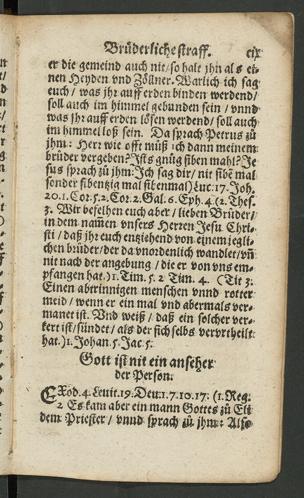 Brüderliche straff. cix
er die gemeind auch nit/ so halt jhn als ei-
nen Heyden vnd Zöllner. Warlich ich sag
euch/ was jhr auff erden binden werdend/
soll auch im himmel gebunden sein/ vnnd
was jhr auff erden lösen werdend/ soll auch
im himmel loß sein. Da sprach Petrus zů
jhm: Herr wie offt můß ich dann meinem
brůder vergeben? Ists gnůg siben mahl? Je
sus sprach zů jhm: Ich sag dir/ nit sibē mal
sonder sibentzig mal sibenmal) Luc. 17. Joh.
20. 1. Cor. 5. 2. Cor. 2. Gal. 6. Eph. 4. (2. Thes.
3. Wir befelhen euch aber/ lieben Brüder/
in dem namen vnsers Herren Jesu Chri-
sti/ daß jhr euch entziehend von einem jegli-
chen brůder/ der da vnordenlich wandlet/ vn̄
nit nach der angebung/ die er von vns em-
pfangen hat.) 1. Tim. 5. 2 Tim. 4. (Tit 3.
Einen abtrinnigen menschen vnnd rotter
meid/ wenn er ein mal vnd abermals ver-
manet ist. Vnd weiß/ daß ein solcher ver-
kert ist/ sündet/ als der sich selbs vervrtheilt
hat.) 1. Johan. 5. Jac. 5.
Gott ist nit ein anseher
der Person.
EXod. 4. Leuit. 19. Deu: 1. 7. 10. 17: (1. Reg:
2 Es kam aber ein mann Gottes zů Eli
dem Priester/ vnnd sprach zů jhm: Also